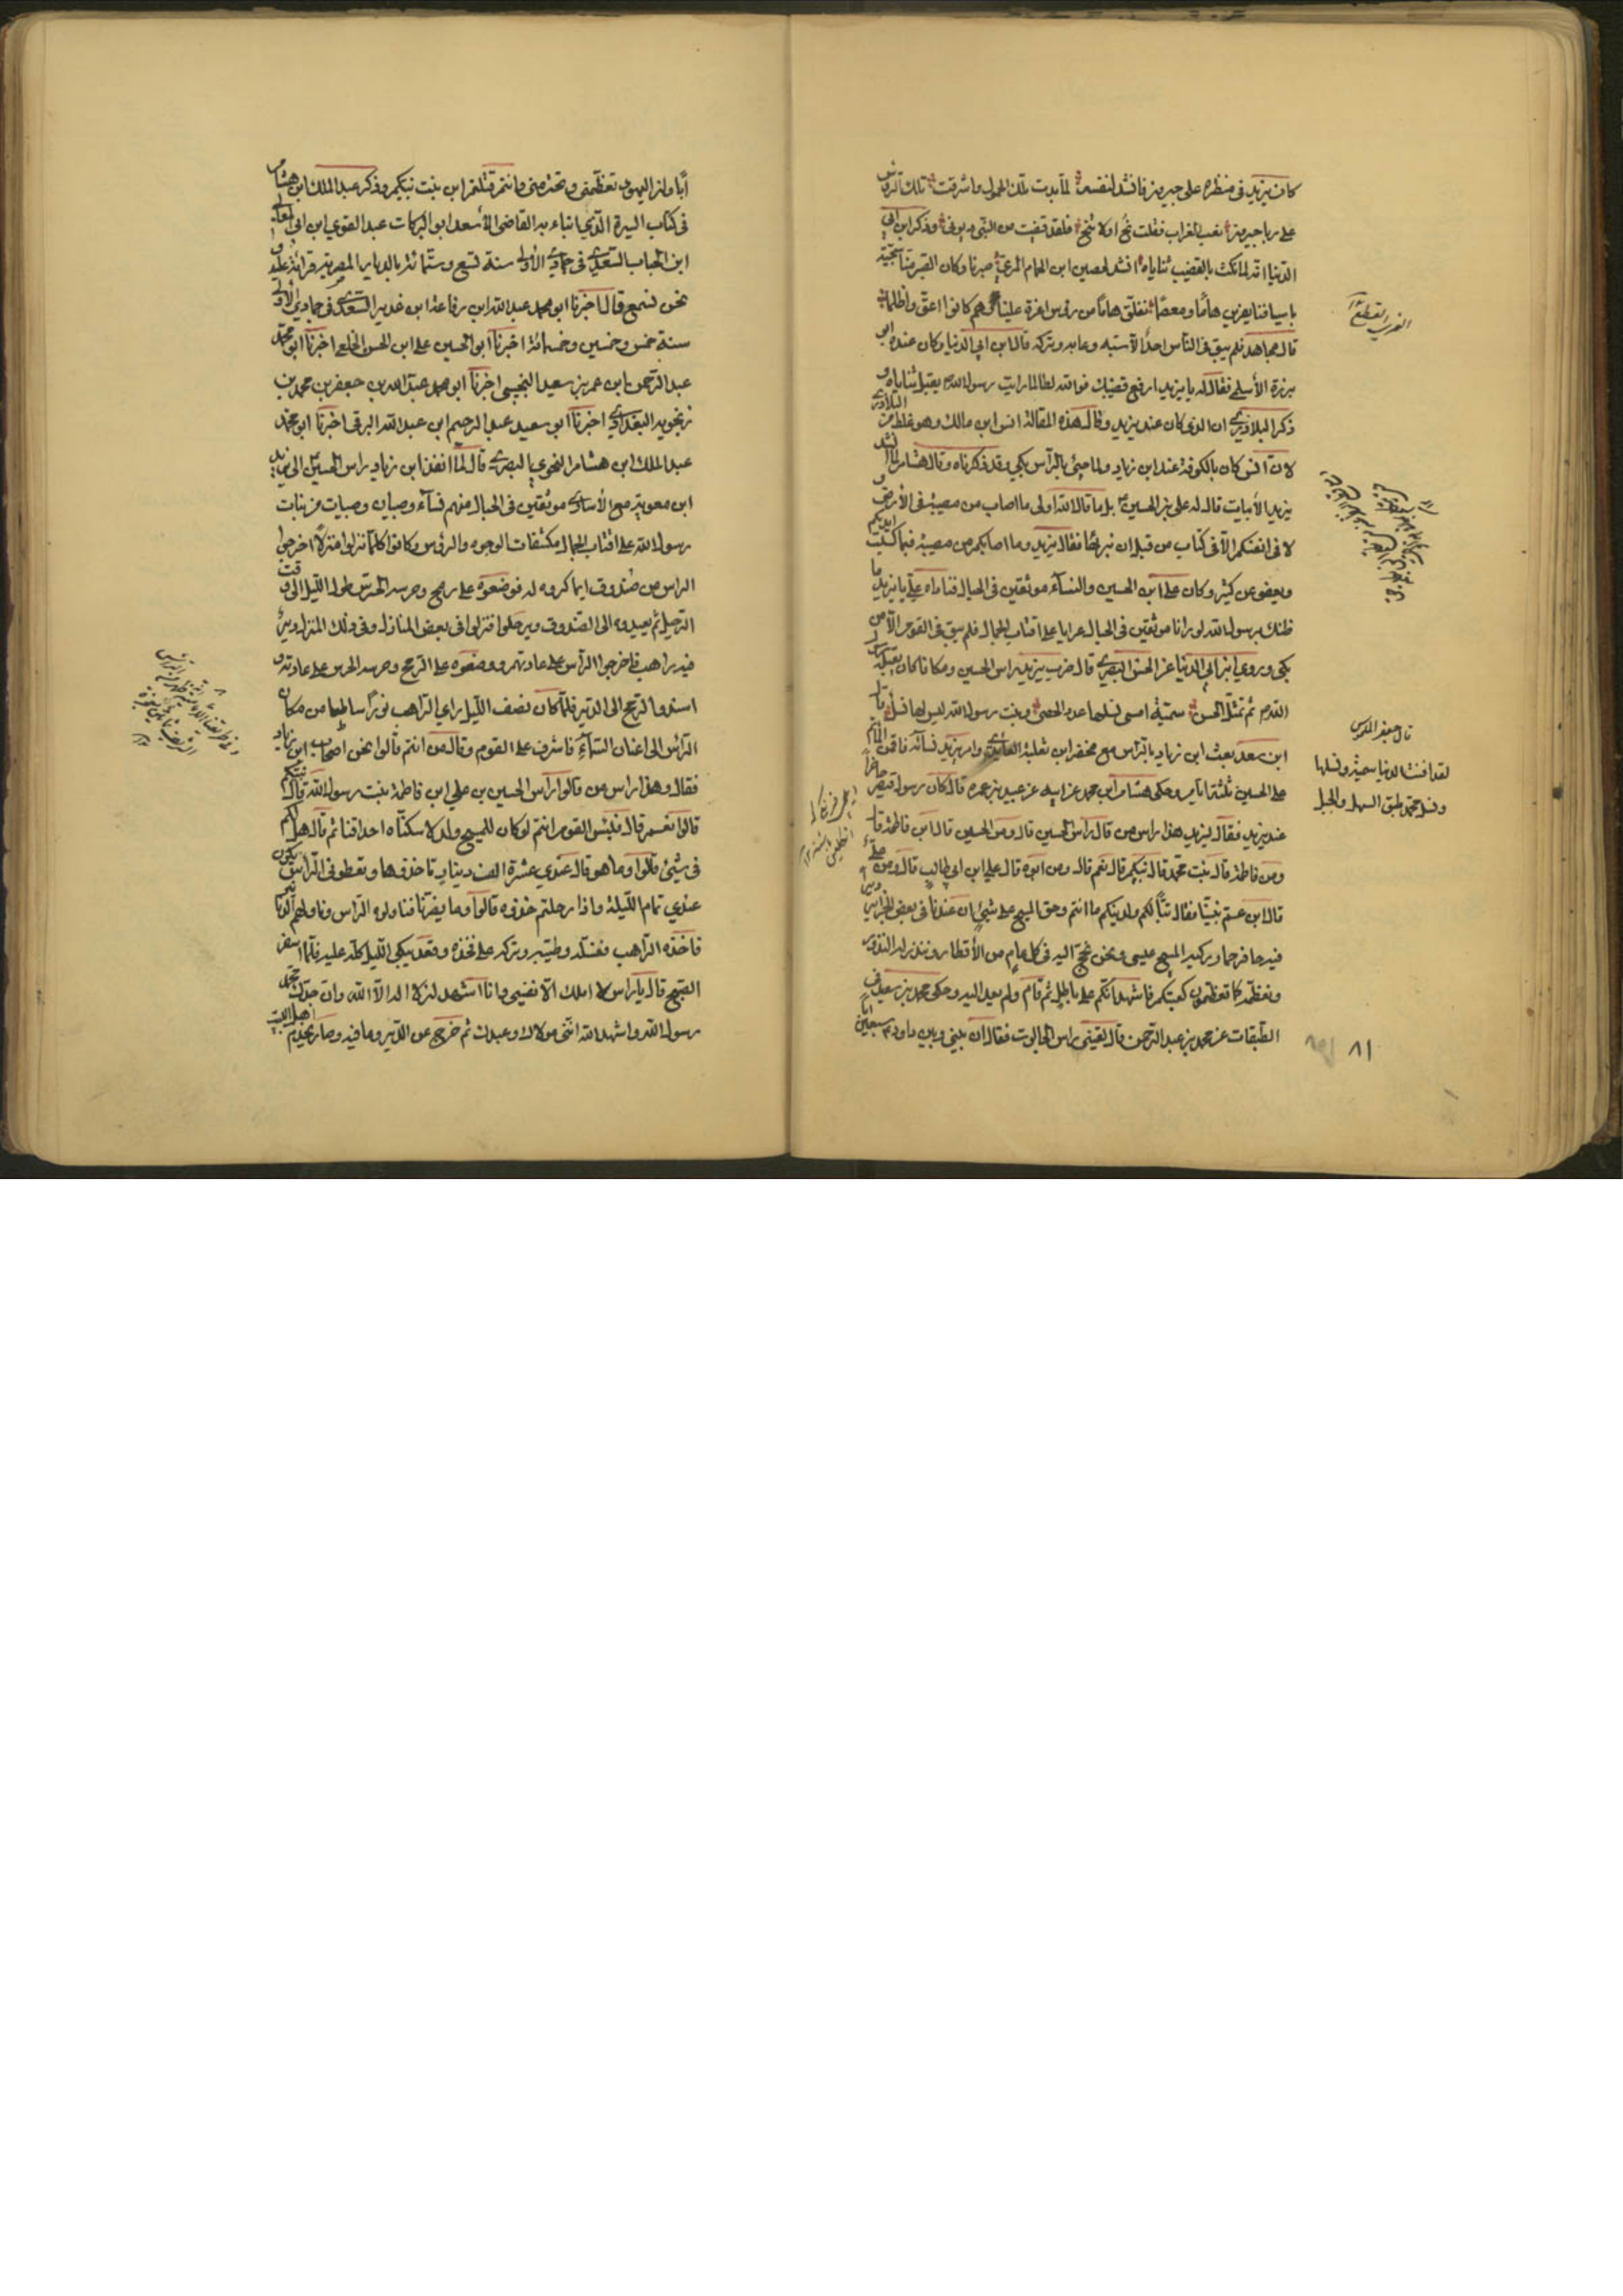 كان يزيد في منظره على جيرون فانشد لنفسه لما بدت تلك الحمول واشرقت تلك الرؤس
على ربا جيرون نعب الغراب فقلت نح او لا تنح فلقد قضيت من النبي ديوني وذكر ابن ابي
الدنيا انه لما نكت بالقضيب ثناياه انشد لحصين ابن الحمام المري صبرنا وكان الصبر منا سجية
باسيافنا يفرين هاما ومعصما نفلق هاما من رؤس اعزة علينا وهم كانوا اعق واظلما
قال مجاهد فلم يبق في الناس احد الا سبه وعابه وتركه قال ابن ابي الدنيا وكان عنده ابو
برزة الأسلمي فقال له يا يزيد ارفع قضيبك فوالله لطالما رايت رسول الله يقبل ثناياه و
ذكر البلاذري ان الذي كان عند يزيد وقال هذه المقالة انس ابن مالك وهو غلط من البلاذري
لان انس كان بالكوفة عند ابن زياد ولما جئ بالرأس بكى وقد ذكرناه وقال هشام لما انشد
يزيد الأبيات قال له علي بن الحسين بل ما قال الله اولى ما اصاب من مصيبة في الأرض و
لا في انفسكم الا في كتاب من قبل ان نبرئها فقال يزيد وما اصابكم من مصيبة فبما كسبت ايديكم
ويعفو عن كثير وكان علي ابن الحسين والنساء موثقين في الحبال فناداه علي يا يزيد ما
ظنك برسول الله لو رآنا موثقين في الحبال عرايا على اقتاب الجمال فلم يبق في القوم الا من
بكى وروى ابن ابي الدنيا عن الحسن البصري قال ضرب يزيد راس الحسين ومكانا كان يقبله رسول
الله ثم تمثل الحسن سمية امسى نسلها عدد الحصى وبنت رسول الله ليس لها نسل قال
ابن سعد بعث ابن زياد بالرأس مع محفز ابن ثعلبة العايذي وامر يزيد نسائه فاقمن المأتم
على الحسين ثلثة ايام وحكى هشام ابن محمد عن ابيه عن عبيد بن عمير قال كان رسول قيصر حاضرا
عند يزيد فقال ليزيد هذا راس من قال راس الحسين قال ومن الحسين قال ابن فاطمة قال
ومن فاطمة قال بنت محمد قال نبيكم قال نعم قال ومن ابوه قال علي ابن ابي طالب قال ومن علي
قال ابن عم نبينا فقال تبا لكم ولدينكم ما انتم وحق المسيح على شيئ ان عندنا في بعض الجزاير دير
فيه حافر حمار ركبه المسيح عيسى ونحن نحج اليه في كل عام من الأقطار وننذر له النذور
ونعظمه كما تعظمون كعبتكم فاشهد انكم على باطل ثم قام ولم يعد اليه وحكى محمد بن سعد في
الطبقات عن محمد بن عبد الرحمن قال لقيني راس الجالوت فقال ان بيني وبين داود سبعين
قال جعفر
لقد افنت الدنيا سمية ونسلها
ونسل محمد طبق السهل والجبل
٨١
ابا وان اليهود تعظمني وتحترمني وانتم قتلتم ابن بنت نبيكم وذكر عبد الملك ابن هشام
في كتاب السيرة الذي انباء به القاضي الأسعد ابو البركات عبد القوي ابن ابي المعالي
ابن الحباب السعدي في جمادى الأولى سنة تسع وستمائة بالديار المصرية قرائة عليه و
نحن نسمع قال اخبرنا ابو محمد عبد الله ابن رفاعة ابن غدير السعدي في جمادى الأولى
سنة خمس وخمسين وخمسمائة اخبرنا ابو الحسين علي ابن الحسن الخلعي اخبرنا ابو محمد
عبد الرحمن ابن عمر بن سعيد النجيبي اخبرنا ابو محمد عبد الله بن جعفر بن محمد بن
زنجويه البغدادي اخبرنا ابو سعيد عبد الرحيم ابن عبد الله البرقي اخبرنا ابو محمد
عبد الملك ابن هشام النحوي البصري قال لما انفذ ابن زياد راس الحسين الى يزيد
ابن معوية مع الأسارى موثقين في الحبال منهم نساء وصبيان وصبيات من بنات
رسول الله على اقتاب الجمال مكشفات الوجوه والرؤس وكانوا كلما نزلوا منزلا اخرجوا
الراس من صندوق ايما كروه له فوضعوه على رمح وحرسه الحرس طول الليل الى وقت
الرحيل ثم يعيدوه الى الصندوق ويرحلوا فنزلوا في بعض المنازل وفي ذلك المنزل دير
فيه راهب فاخرجوا الرأس على عادتهم ووضعوه على الرمح وحرسه الحرس على عادته و
اسندوا الرمح الى الدير فلما كان نصف الليل راى الراهب نورا ساطعا من مكان
الرأس الى اعنان السماء فاشرف على القوم وقال من انتم قالوا نحن اصحاب ابن زياد
فقال وهذا راس من قالوا رأس الحسين بن علي ابن فاطمة بنت رسول الله قال نبيكم
قالوا نعم قال فلبئس القوم انتم لو كان للمسيح ولد لاسكناه احداقنا ثم قال هل لكم
في شيئ قالوا وما هو قال عندي عشرة الف دينار تاخذوها وتعطوني الراس يكون
عندي تمام الليلة واذا رحلتم خذوه قالوا وما يضرنا فناولوه الراس وناولهم الدنانير
فاخذه الراهب فغسله وطيبه وتركه على فخذه وقعد يبكي الليل كله عليه فلما اسفر
الصبح قال يا راس لا املك الا نفسي وانا اشهد ان لا اله الا الله وان جدك محمد
رسول الله واشهد الله انني مولاك وعبدك ثم خرج عن الدير وما فيه وصار يخدم اهل البيت